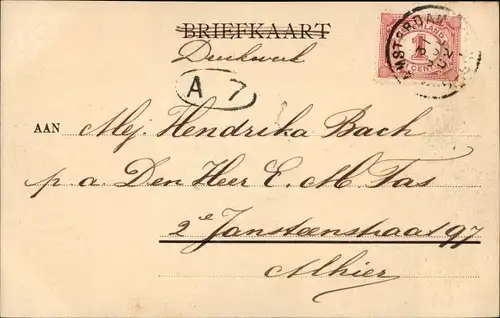 BRIEFKAART
Drukwerk
NEDERLAND
1
CENT
AMSTERDAM
A 7
AAN Mej. Hendrika Bach
p. a. Den Heer E. M. Tas
2e Jansteenstraat 97
Alhier